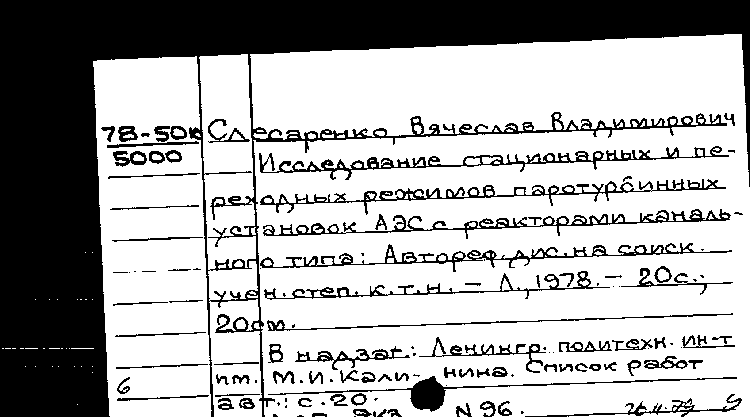 78-50к Слесаренко, Вячеслав Владимирович
5000 Исследование стационарных и пе-
реходных режимов паротурбинных
установок АЭС с реакторами каналь-
ного типа: Автореф. дис. на соиск.
учен. степ. к.т.н. - Л., 1978. - 20с.;
20см.
В надзаг.: Ленингр. политехн. ин-т
6 им. М.И. Кали- нина. Список работ
авт.: с.20.
экз. N96. 26.4.79